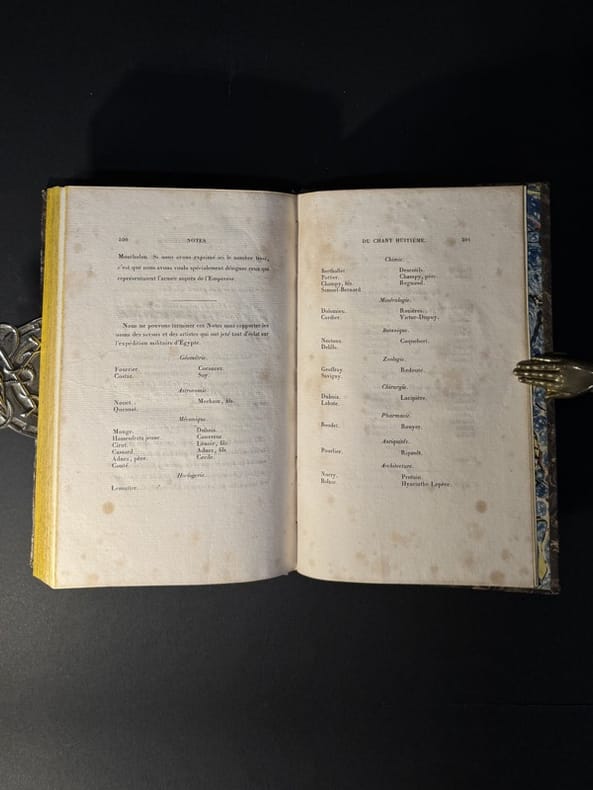 300 NOTES
Montholon. Si nous avons exprimé ici le nombre trois,
c'est que nous avons voulu spécialement désigner ceux qui
représentaient l'armée auprès de l'Empereur.
Nous ne pouvons terminer ces Notes sans rapporter les
noms des savans et des artistes qui ont jeté tant d'éclat sur
l'expédition militaire d'Égypte.
Géométrie.
Fourrier. Corancez.
Costaz. Say.
Astronomie.
Nouet. Mechain, fils.
Quesnot.
Mécanique.
Monge. Dubois.
Hassenfratz jeune. Couvreur.
Cirot. Lenoir, fils.
Cassard. Adnez, fils.
Adnez, père. Cécile.
Conté.
Horlogerie.
Lemaitre.
DU CHANT HUITIÈME. 301
Chimie.
Berthollet. Descotils.
Pottier. Champy, père.
Champy, fils. Regnaud.
Samuel-Bernard.
Minéralogie.
Dolomieu. Rozières.
Cordier. Victor-Dupuy.
Botanique.
Nectoux. Coquebert.
Delille.
Zoologie.
Geoffroy. Redouté.
Savigny.
Chirurgie.
Dubois. Lacipière.
Labate.
Pharmacie.
Boudet. Rouyer.
Antiquités.
Pourlier. Ripault.
Architecture.
Norry. Protain.
Balzac. Hyacinthe Lepère.